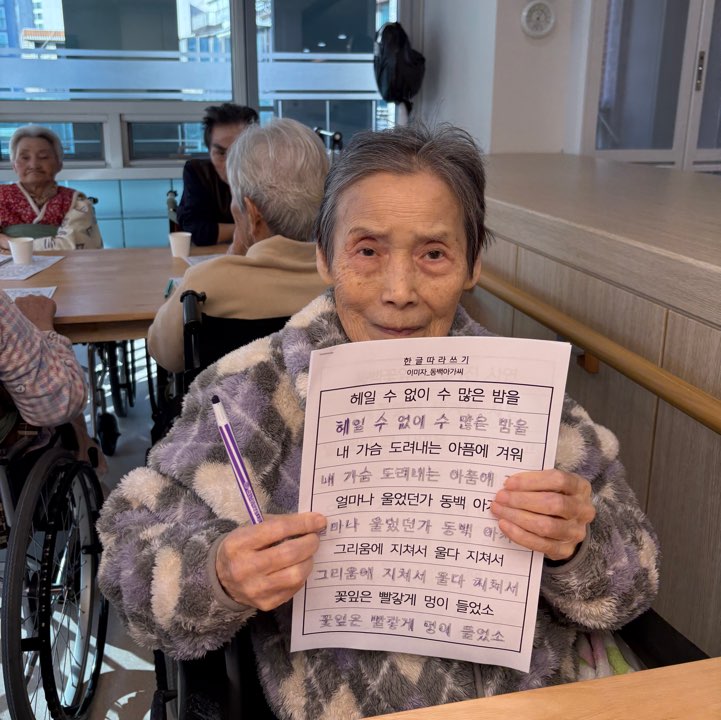 한글따라쓰기
이미자_동백아가씨
헤일 수 없이 수 많은 밤을
헤일 수 없이 수 많은 밤을
내 가슴 도려내는 아픔에 겨워
내 가슴 도려내는 아픔에
얼마나 울었던가 동백 아가
얼마나 울었던가 동백 아가
그리움에 지쳐서 울다 지쳐서
그리움에 지쳐서 울다 지쳐서
꽃잎은 빨갛게 멍이 들었소
꽃잎은 빨갛게 멍이 들었소